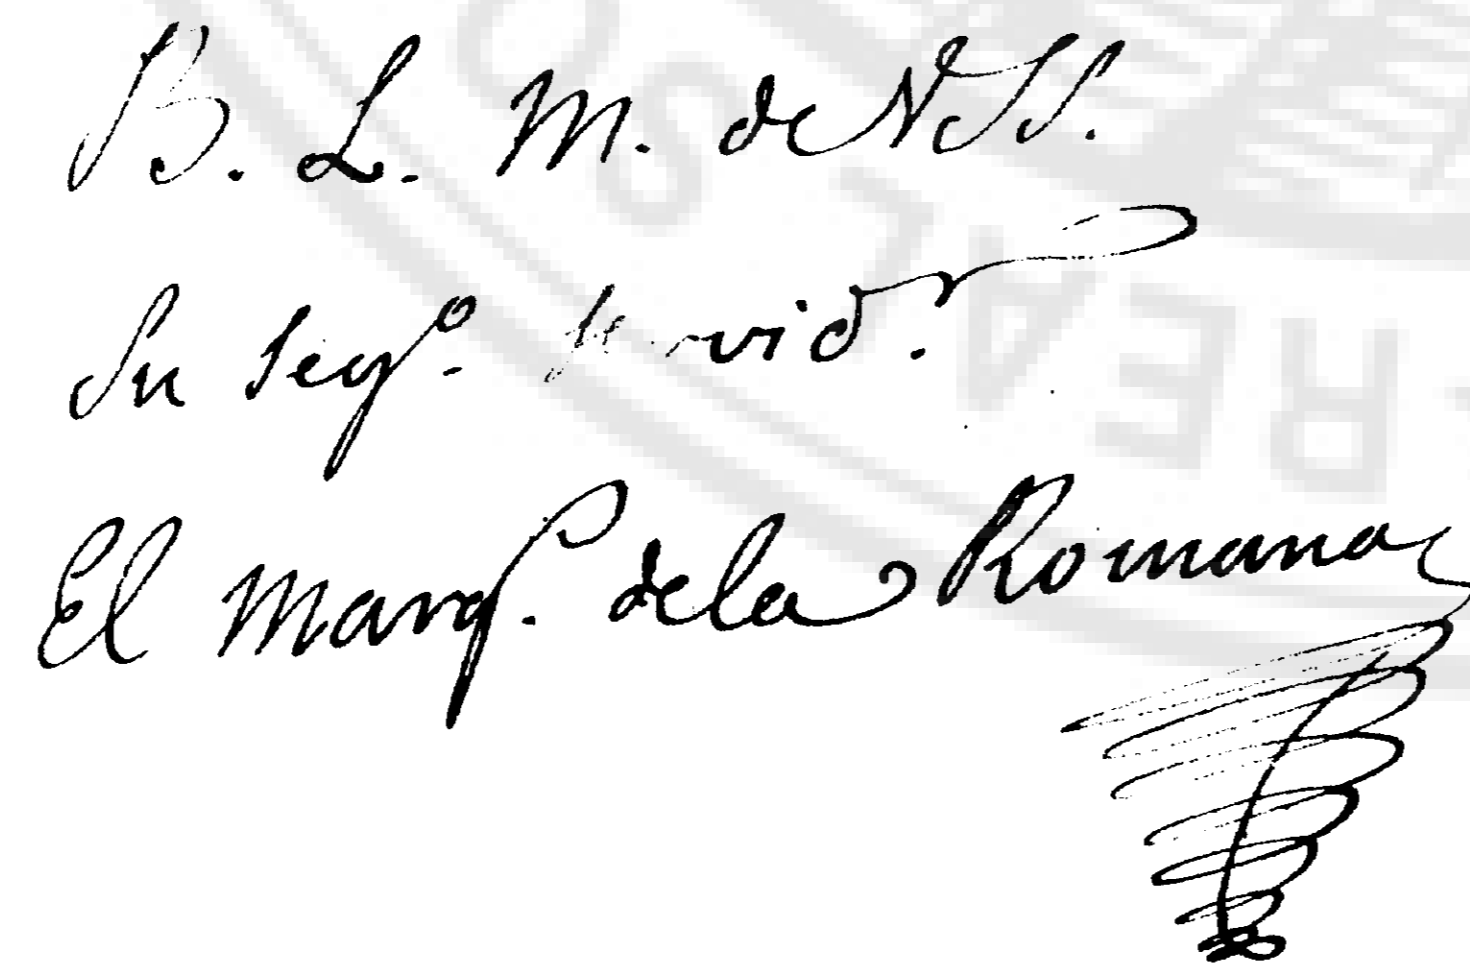 B. L. M. de VSS.
Su segº. servidʳ.
El Marqˢ. de la Romana